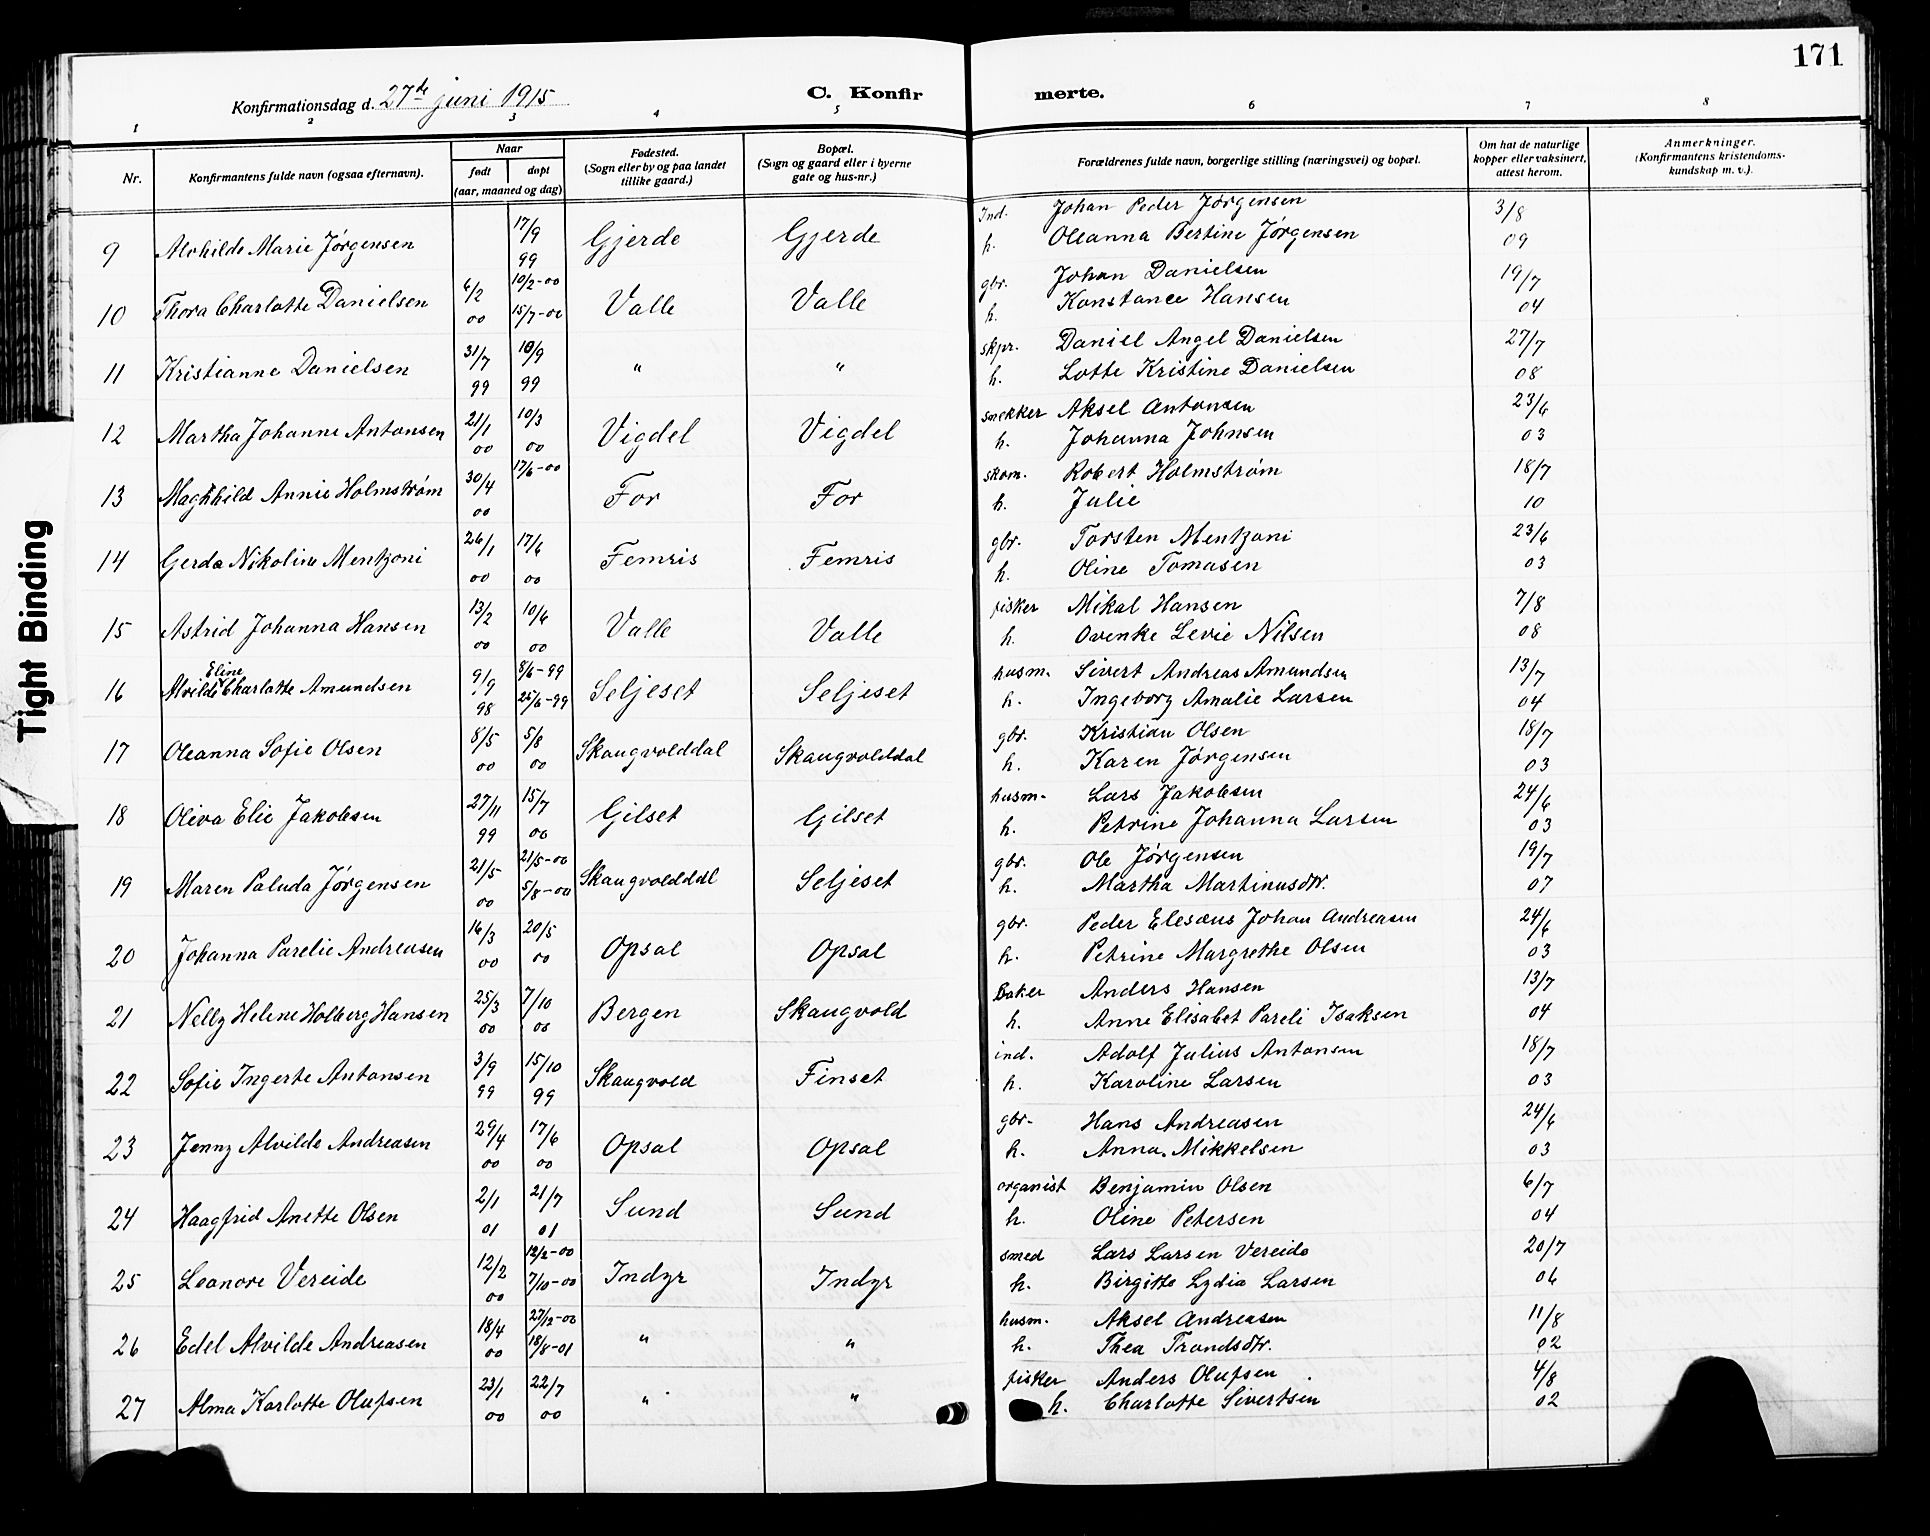 171
Konfirmationsdag d. 27de juni 1915
C. Konfirmerte.
1 2 3 4 5 6 7 8
Nr. Konfirmantens fulde navn (ogsaa efternavn). Naar født døpt (aar, maaned og dag) Fødested. (Sogn eller by og paa landet tillike gaard.) Bopæl. (Sogn og gaard eller i byerne gate og hus-nr.) Forældrenes fulde navn, borgerlige stilling (næringsvei) og bopæl. Om hat de naturlige kopper eller vaksinert, attest herom. Anmerkninger. (Konfirmantens kristendomskundskap m. v.).
9 Alvhilde Marie Jørgensen 17/9 99 Gjerde Gjerde Ind. Johan Peder Jørgensen 3/8
h. Oleanna Bertine Jørgensen 09
10 Thora Charlotte Danielsen 6/2 00 10/2-00 15/7-00 Valle Valle gbr. Johan Danielsen 19/7
h. Konstance Hansen 04
11 Kristianne Danielsen 31/7 99 10/9 99 " " skpr. Daniel Angel Danielsen 27/7
h. Lotte Kristine Danielsen 08
12 Martha Johanne Antonsen 21/1 00 10/3 00 Vigdel Vigdel snekker Aksel Antonsen 23/6
h. Johanna Johnsen 03
13 Maghhild Annie Holmstrøm 30/4 00 17/6-00 For For skom. Robert Holmstrøm 18/7
h. Julie 10
14 Gerda Nikoline Mentzoni 26/1 00 17/6 00 Femris Femris gbr. Torsten Mentzoni 23/6
h. Oline Tomasen 03
15 Astrid Johanna Hansen 13/2 00 10/6 00 Valle Valle fisker Mikal Hansen 7/8
h. Ovenke Levie Nilsen 08
16 Alvilde Eline Charlotte Amundsen 9/9 98 8/6-99 25/6-99 Seljeset Seljeset husm. Sivert Andreas Amundsen 13/7
h. Ingeborg Amalie Larsen 04
17 Oleanna Sofie Olsen 8/5 00 5/8 00 Skaugvolddal Skaugvolddal gbr. Kristian Olsen 18/7
h. Karen Jørgensen 03
18 Oliva Elie Jakobsen 27/11 99 15/7 00 Gilset Gilset husm. Lars Jakobsen 24/6
h. Petrine Johanna Larsen 03
19 Maren Paluda Jørgensen 21/5 00 21/5-00 5/8-00 Skaugvolddal Seljeset gbr. Ole Jørgensen 19/7
h. Martha Martinusdtr. 07
20 Johanna Parelie Andreasen 16/3 00 20/5 00 Opsal Opsal gbr. Peder Elesæus Johan Andreasen 24/6
h. Petrine Margrethe Olsen 03
21 Nelly Helene Holberg Hansen 25/3 00 7/10 00 Bergen Skaugvold Baker Anders Hansen 13/7
h. Anne Elisabet Pareli Isaksen 04
22 Sofie Ingerte Antonsen 3/9 99 15/10 99 Skaugvold Finset ind. Adolf Julius Antonsen 18/7
h. Karoline Larsen 03
23 Jenny Alvilde Andreasen 29/4 00 17/6 00 Opsal Opsal gbr. Hans Andreasen 24/6
h. Anna Mikkelsen 03
24 Haagfrid Anette Olsen 2/1 01 21/7 01 Sund Sund organist Benjamin Olsen 6/7
h. Oline Petersen 04
25 Leonore Vereide 12/2 00 12/2-00 7/10-00 Indyr Indyr smed Lars Larsen Vereide 20/7
h. Birgitte Lydia Larsen 06
26 Edel Alvilde Andreasen 18/4 00 27/12-00 18/8-01 " " husm. Aksel Andreasen 11/8
h. Thea Trondsdtr. 02
27 Alma Karlotte Olufsen 23/1 00 22/7 00 " " fisker Anders Olufsen 4/8
h. Charlotte Sivertsen 02
Tight Binding